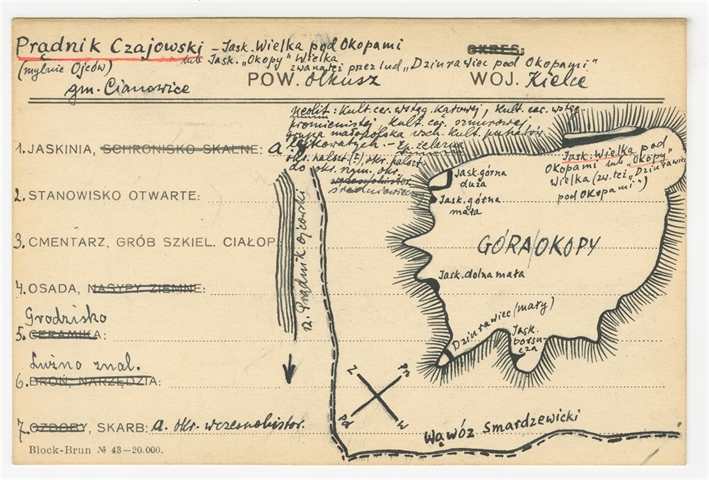 Prądnik Czajowski – Jask. Wielka pod Okopami
(mylnie Ojców) lub Jask. „Okopy” Wielka OKRES:
zwana też przez lud „Dziurawiec pod Okopami”
gm. Cianowice POW. Olkusz WOJ. Kielce
neolit: Kult. cer. wstęg. Kłutowej, Kult. cer. wstęg.
promienistej Kult. cer. sznurowej,
grupa małopolska wsch. kult. puharów
lejkowatych. – Ep. żelazna
okr. halszt. (?), okr.
do okr. rzym. okr.
średniowiecz.
1. JASKINIA, SCHRONISKO SKALNE: a.
2. STANOWISKO OTWARTE:
3. CMENTARZ, GRÓB SZKIEL. CIAŁOP.
4. OSADA, NASYPY ZIEMNE:
Grodzisko
5. CERAMIKA:
Luźno znal.
6. BROŃ, NARZĘDZIA:
7. OZDOBY, SKARB: a. okr. wczesnohistor.
Block-Brun № 43—20.000.
rz. Prądnik ojcowski
Jask. Wielka pod
Okopami lub „Okopy”
Wielka (zw. też „Dziurawiec
pod Okopami”)
Jask. górna
duża
Jask. górna
mała
GÓRA OKOPY
Jask. dolna mała
Dziurawiec (mały)
Jask.
borsu-
cza
Z Pn
Pd W
Wąwóz Smardzewicki